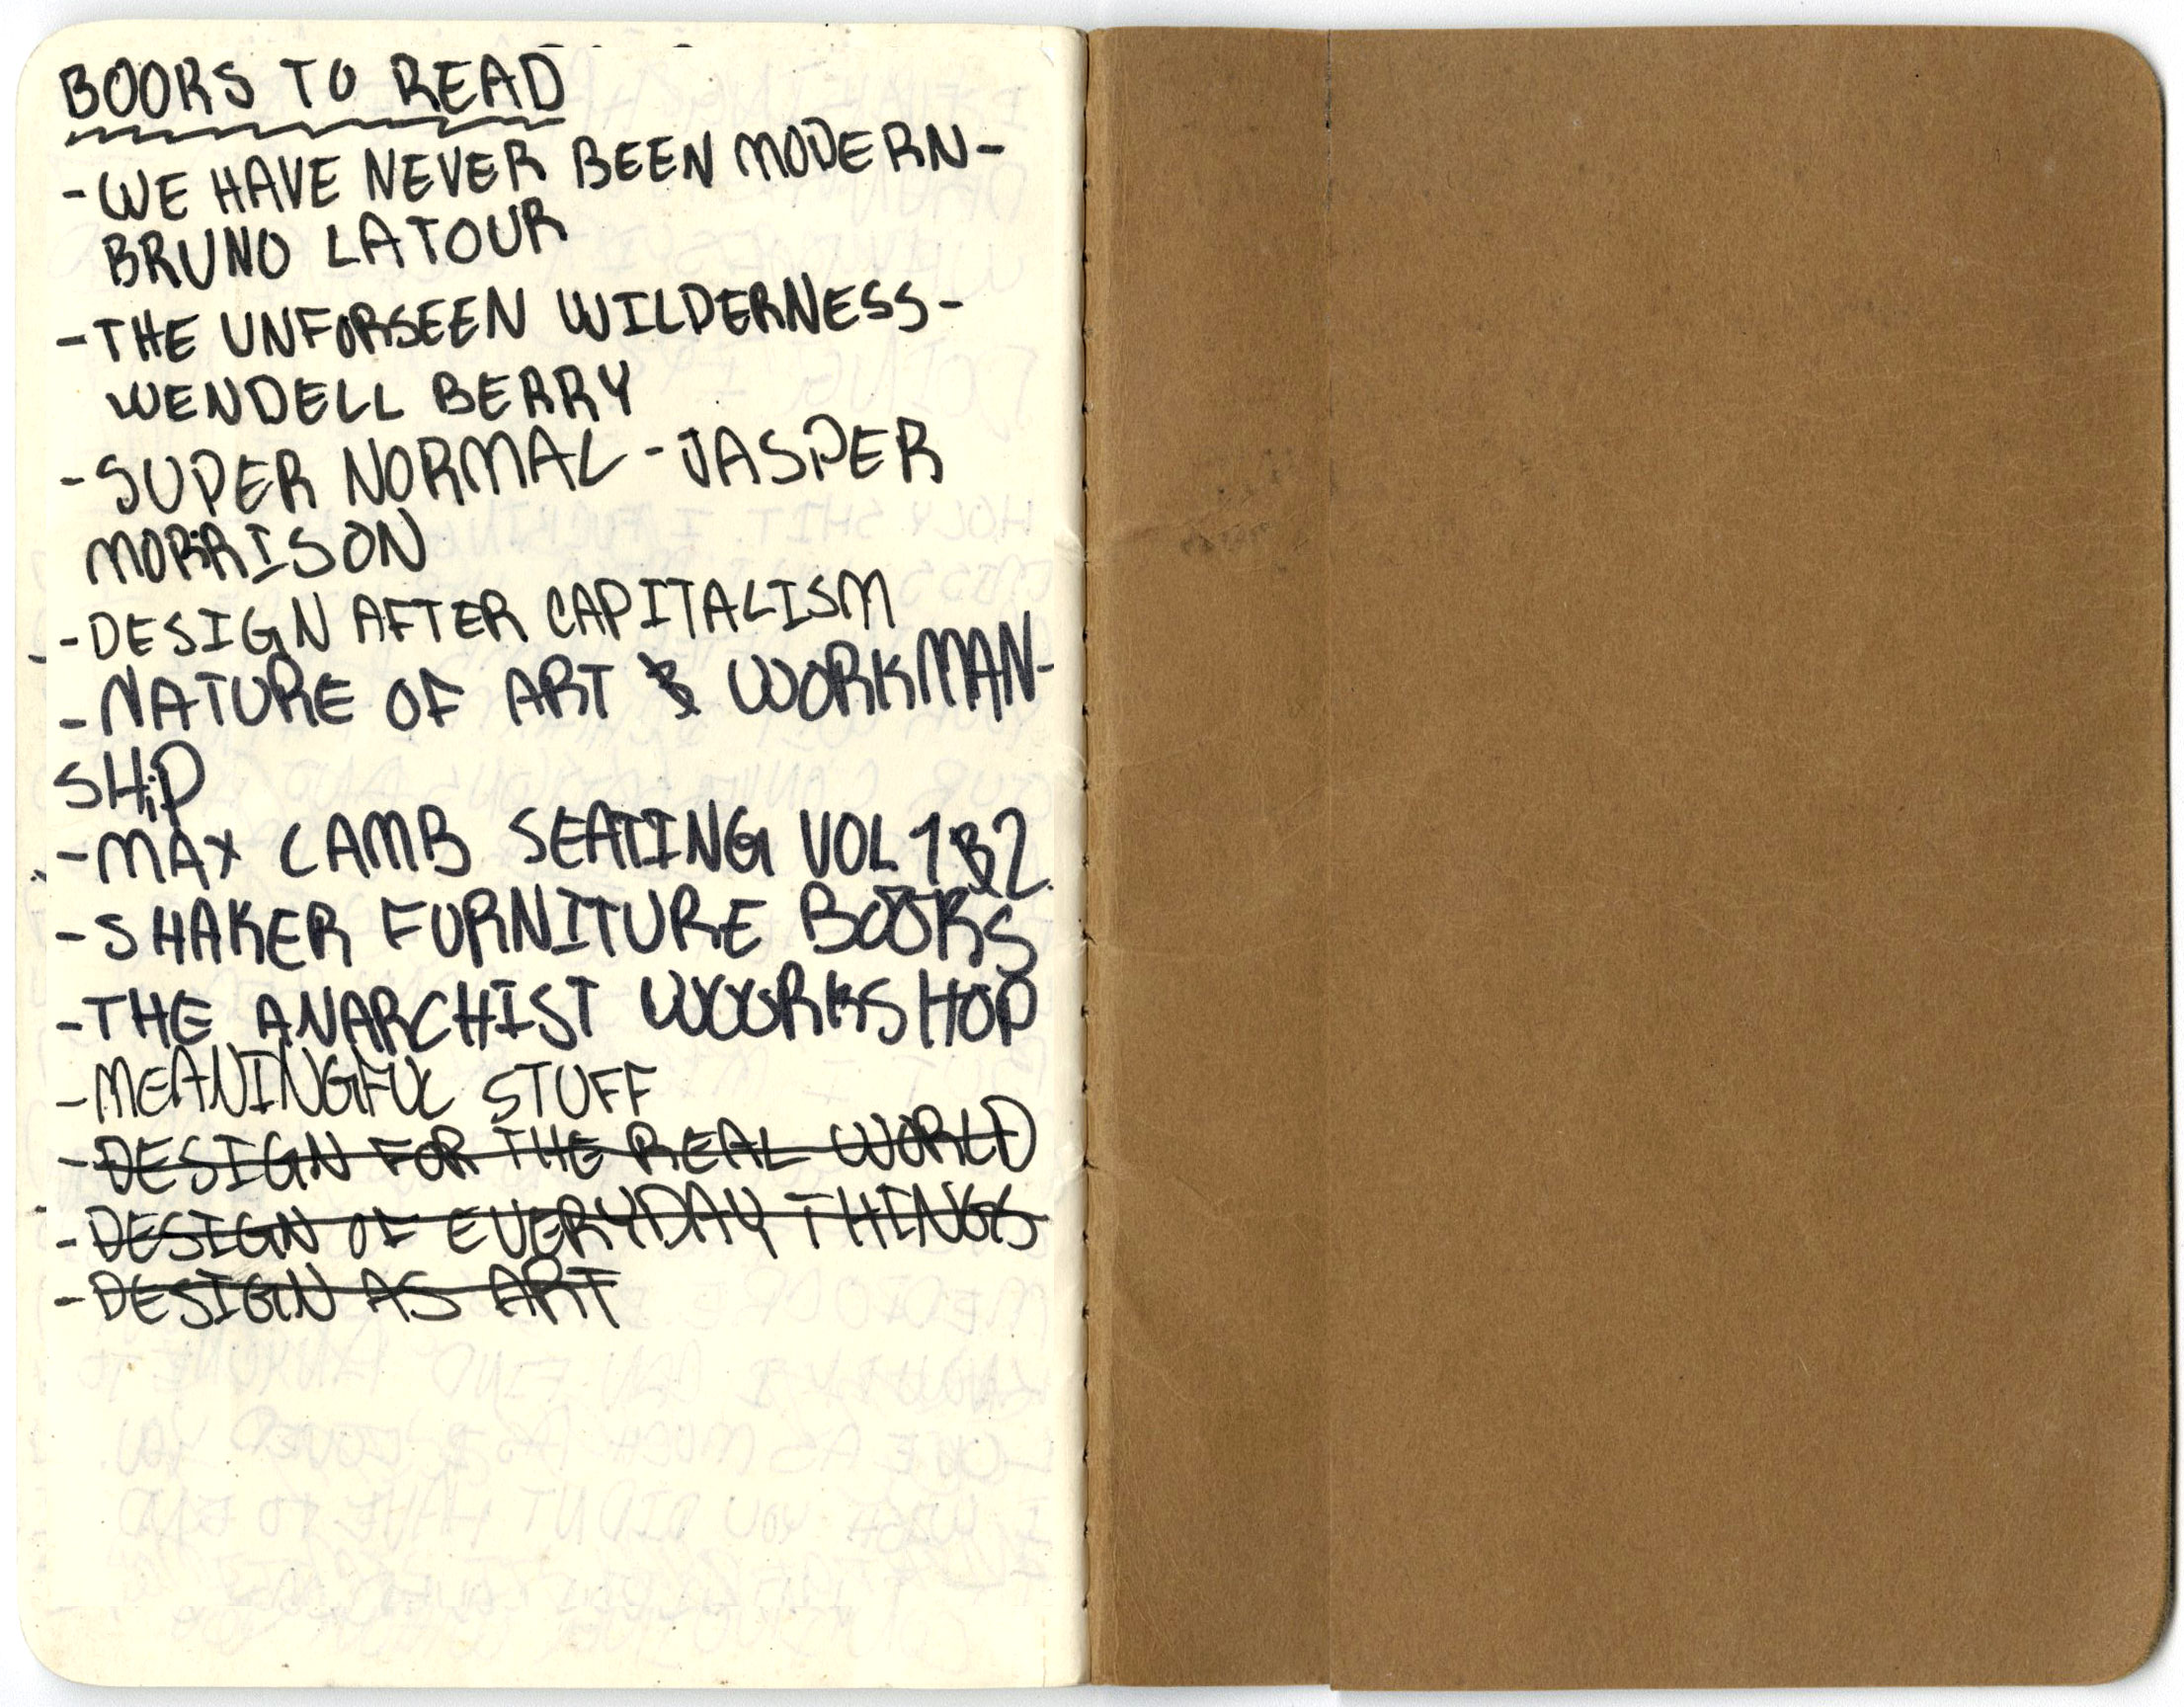 BOOKS TO READ
- WE HAVE NEVER BEEN MODERN -
BRUNO LATOUR
- THE UNFORSEEN WILDERNESS -
WENDELL BERRY
- SUPER NORMAL - JASPER
MORRISON
- DESIGN AFTER CAPITALISM
- NATURE OF ART & WORKMAN-
SHIP
- MAX LAMB SEATING VOL 1&2
- SHAKER FURNITURE BOOKS
- THE ANARCHIST WORKSHOP
- MEANINGFUL STUFF
- DESIGN FOR THE REAL WORLD
- DESIGN OF EVERYDAY THINGS
- DESIGN AS ART